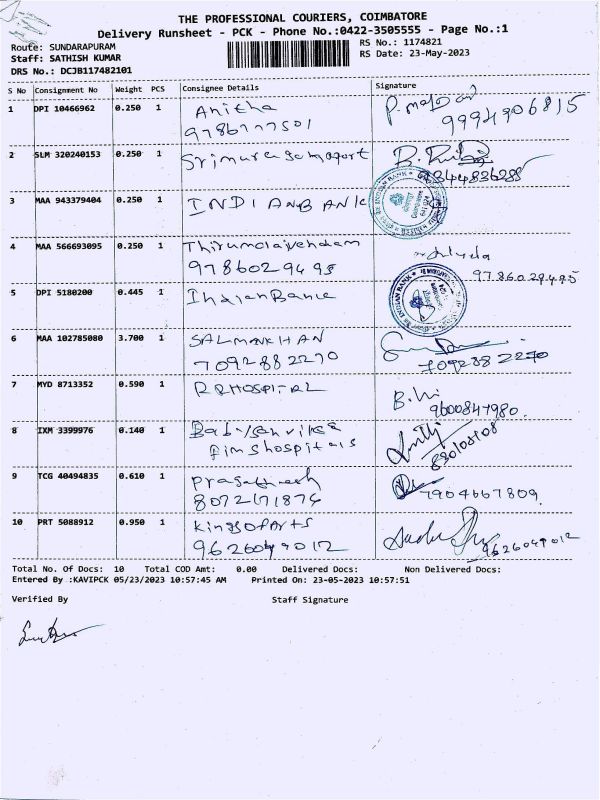 THE PROFESSIONAL COURIERS, COIMBATORE
Delivery Runsheet - PCK - Phone No.:0422-3505555 - Page No.:1
Route: SUNDARAPURAM RS No.: 1174821
Staff: SATHISH KUMAR RS Date: 23-May-2023
DRS No.: DCJB117482101
S No Consignment No Weight PCS Consignee Details Signature
1 DPI 10466962 0.250 1 Anitha
9786777501 9994906815
2 SLM 320240153 0.250 1
3 MAA 943379404 0.250 1 INDIANBANK
4 MAA 566693095 0.250 1
9786029495 9786029495
5 DPI 5180200 0.445 1 IndianBank
6 MAA 102785080 3.700 1 SALMANKHAN
7092882270 7092882270
7 MYD 8713352 0.590 1 RRHOSPITAL
9600847980
8 IXM 3399976 0.140 1
fimshospitals
9 TCG 40494835 0.610 1
8072171874 7904667809
10 PRT 5088912 0.950 1 kingsofArts
9626049012 9626049012
Total No. Of Docs: 10 Total COD Amt: 0.00 Delivered Docs: Non Delivered Docs:
Entered By :KAVIPCK 05/23/2023 10:57:45 AM Printed On: 23-05-2023 10:57:51
Verified By Staff Signature